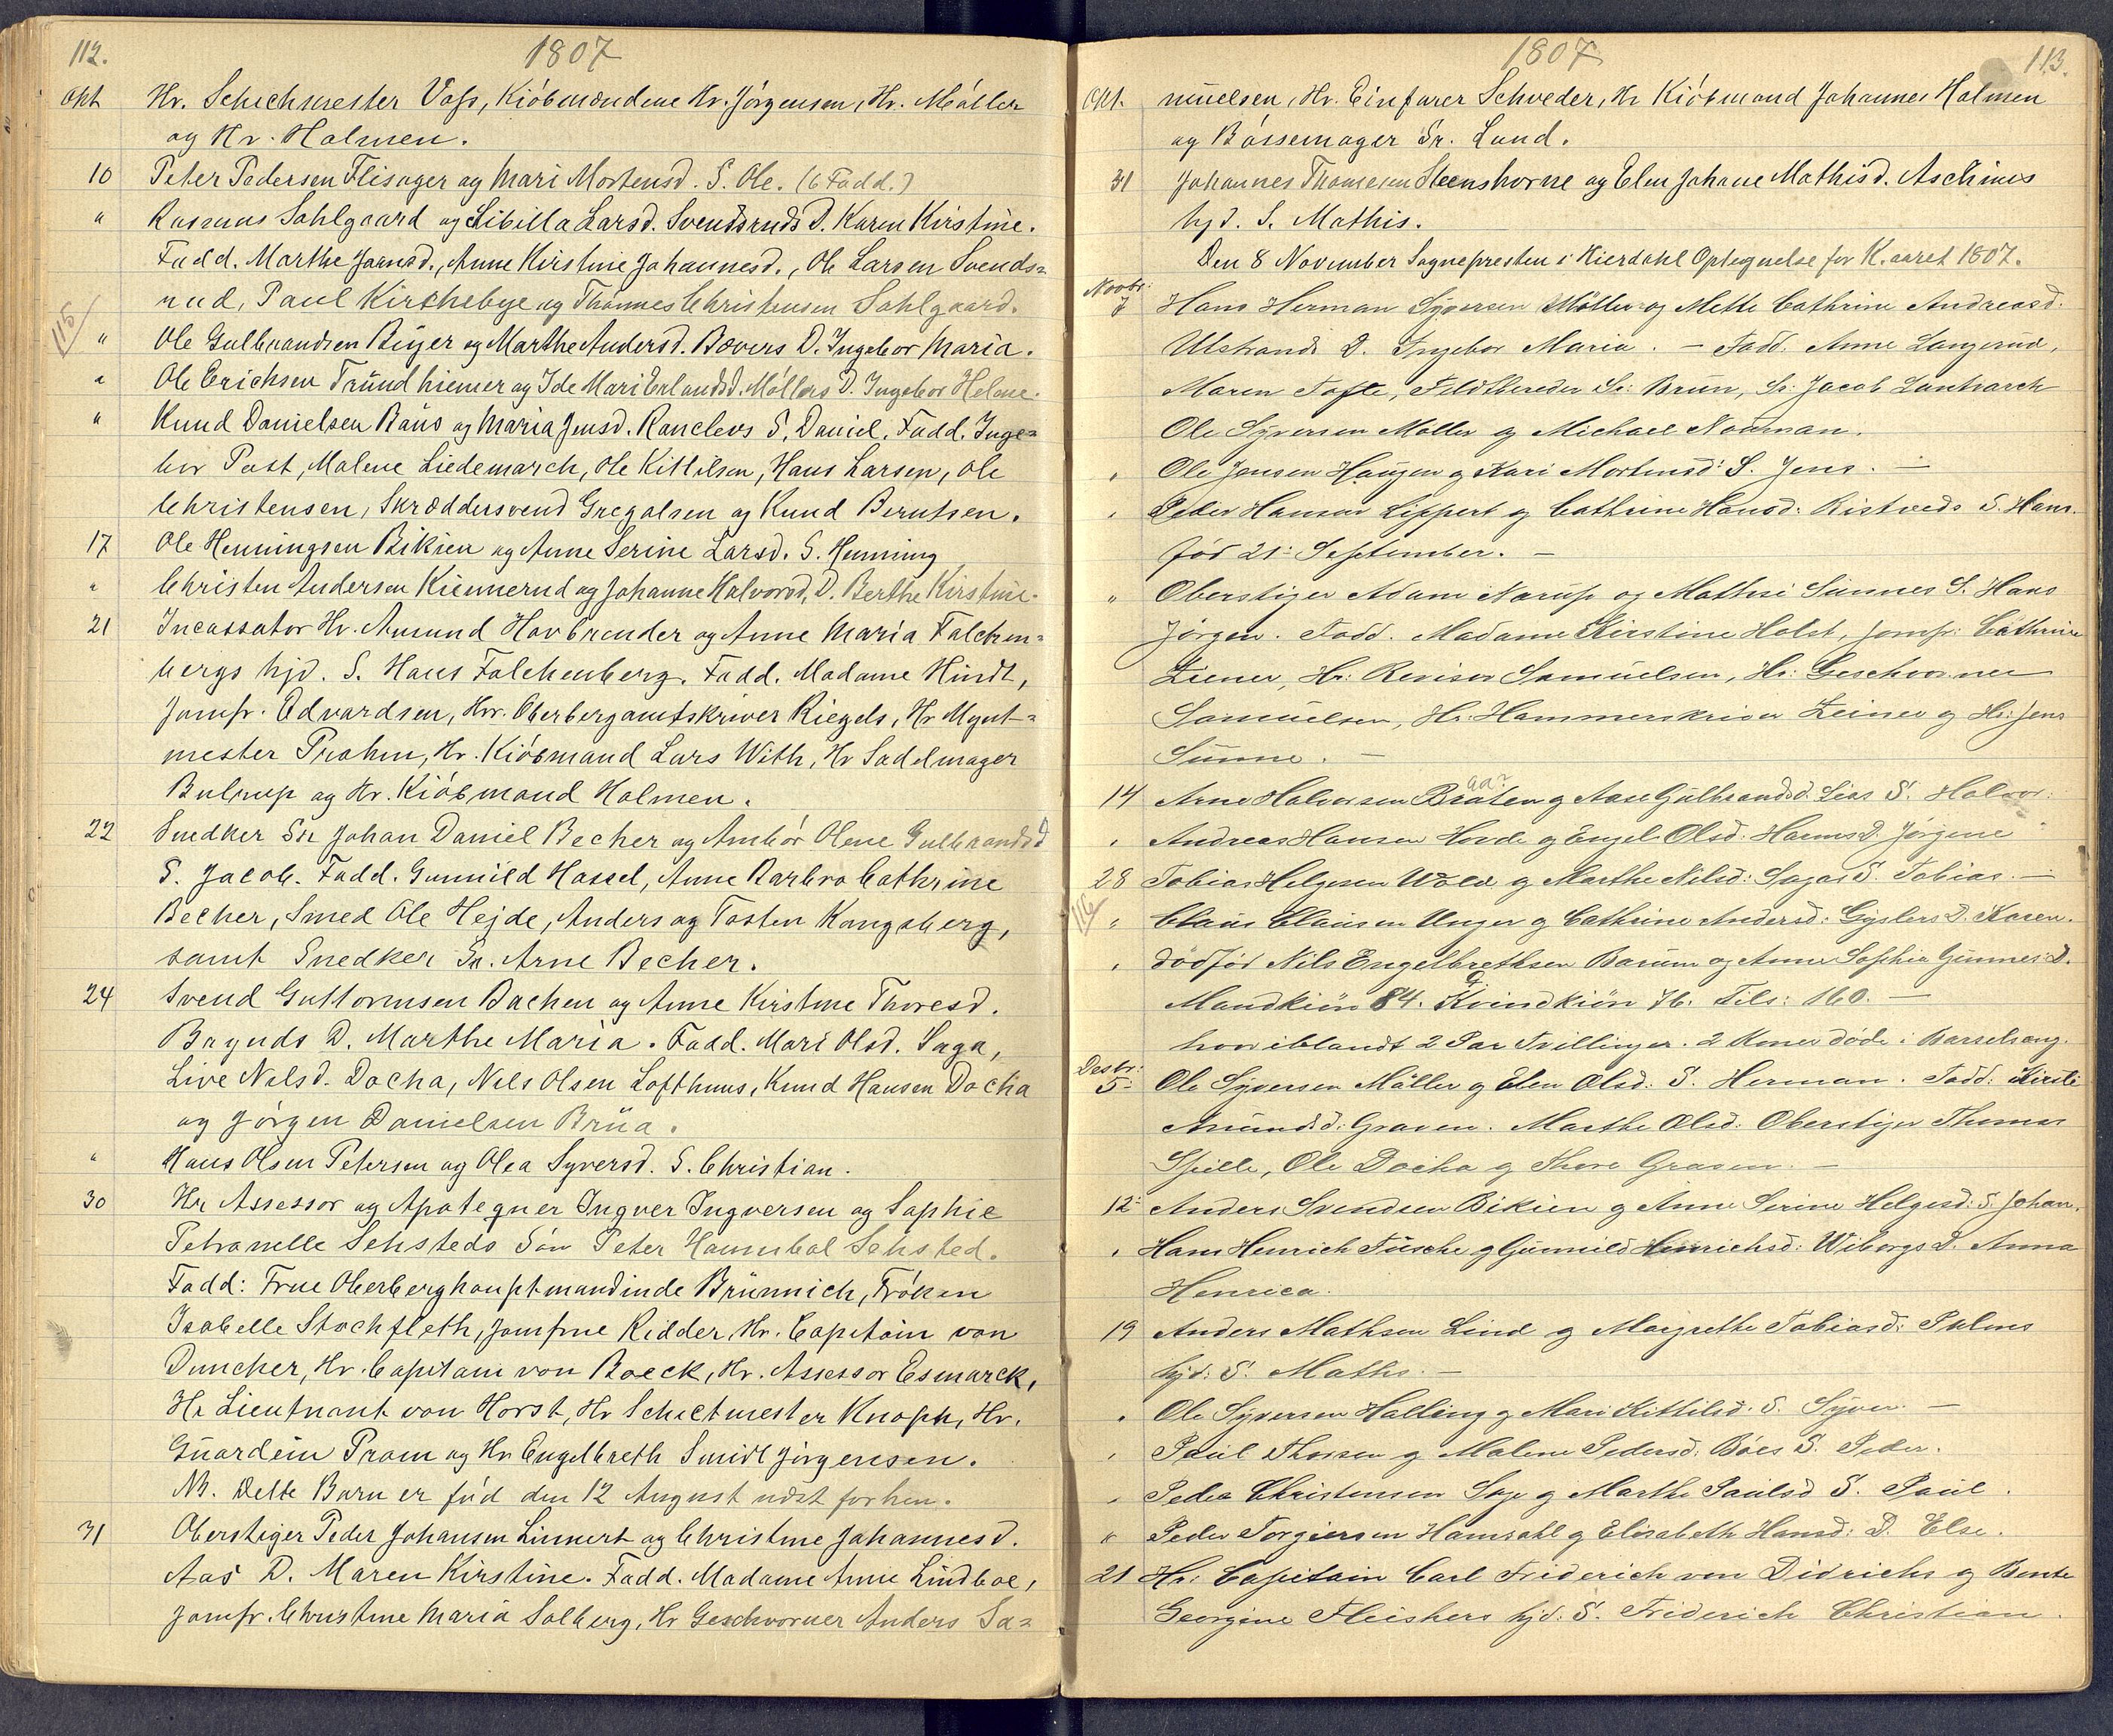 112.
1807
Okt Hr. Schichmester Voss, Kióbmændene Hr. Jórgensen, Hr. Móller
og Hr. Holmen.
10 Peter Pedersen Flisager og Mari Mortensd. S. Ole. (6 Fadd.)
" Rasmus Sohlgaard og Sibilla Larsd. Svendsruds D. Karen Kirstine.
Fadd. Marthe Joensd., Anne Kirstine Johannesd., Ole Larsen Svends=
rud, Paul Kirchebye og Thomes Christensen Sohlgaard.
115
" Ole Gulbrandsen Beyer og Marthe Andersd. Bævers D. Ingebor Maria.
" Ole Erichsen Trundhiemer og Ide Mari Erlandsd. Móllers D. Ingebor Helene.
" Knud Danielsen Raus og Maria Jensd. Ranclevs S. Daniel. Fadd. Inge=
bor Post, Malene Liedemarch, Ole Kittilsen, Hans Larsen, Ole
Christensen, Skræddersvend Gregalsen og Knud Berntsen.
17 Ole Henningsen Bikien og Anne Serine Larsd. S. Henning
" Christen Andersen Kiennerud og Johanne Halvorsd, D. Berthe Kirstine.
21 Incassator Hr. Amund Havbrender og Anne Maria Falchen=
bergs hjd. S. Hans Falchenberg. Fadd. Madame Hindt,
Jomfr. Edvardsen, Hr. Oberbergamtskriver Riegels, Hr Mynt=
mester Prahm, Hr. Kióbmand Lars With, Hr Sadelmager
Bulrup og Hr. Kióbmand Holmen.
22 Snedker Sr Johan Daniel Becher og Ambór Olene Gulbrandsd
S. Jacob. Fadd. Gunnild Hassel, Anne Barbra Cathrine
Becher, Smed Ole Hejde, Anders og Tosten Kongsberg,
samt Snedker Sr. Arne Becher.
24 Svend Guttormsen Bachen og Anne Kirstine Thoresd.
Bagnds D. Marthe Maria. Fadd. Mari Olsd. Saga,
Live Nelsd. Docha, Nels Olsen Lofthuus, Knud Hansen Docha
og Jórgen Danielsen Brua.
" Hans Olsen Petersen og Olea Syversd. S. Christian.
30 Hr Assessor og Apotequer Ingver Ingversen og Sophie
Petronelle Sehsteds Són Peter Hannibal Sehsted.
Fadd: Frue Oberberghauptmandinde Brünnich, Fróken
Isabelle Stochfleth, Jomfrue Ridder, Hr. Capitain von
Duncher, Hr. Capitain von Boeck, Hr. Assessor Esmarck,
Hr Lieutnant von Horst, Hr Schictmester Knoph, Hr.
Guardein Pram og Hr Engelbreth Smidt Jórgensen.
NB. Dette Barn er fód den 12 August nest forhen.
31 Oberstiger Peder Johansen Linnert og Christine Johannesd.
Aas D. Maren Kirstine. Fadd. Madame Anne Lindboe,
Jomfr. Christine Maria Solberg, Hr Geschvorner Anders Sa=
1807
113.
Okt. muelsen, Hr. Einfarer Schveder, Hr Kióbmand Johannes Holmen
og Bóssemager Sr. Lund.
31 Johannes Thomesen Steenshorne og Elen Johane Mathisd. Aschims
hjd. S. Mathis.
Den 8 November Sognepresten i Hierdahl Optegnelse for K.aaret 1807.
Novbr:
7 Hans Herman Syversen Möller og Mette Cathrine Andreasd.
Ulstrands D. Ingebor Maria. – Fadd. Anne Langerud,
Maren Tofte, Feldtbereder Sr: Brun, Sr: Jacob Lantrarch
Ole Syversen Møller og Michael Nouman.
" Ole Jensen Haugen og Kari Mortensd: S. Jens. –
" Peder Hansen Lippert og Cathrine Hansd: Ristveds S. Hans.
fød 21: September. –
" Oberstiger Adam Narup og Mathei Sunnes S. Hans
Jörgen. Fadd. Madame Kirstine Holst, Jomfr: Cathrine
Ziener, Hr: Revisor Samuelsen, Hr: Geschvorner
Samuelsen, Hr: Hammerskriver Zeiner og Hr: Jens
Sunne. –
aa?
14 Arne Halvorsen Braten og Aase Gulbrandsd. Lias S. Halvor.
" Andreas Hansen Hovde og Engel Olsd: Harms D. Jörgine
28 Tobias Helgesen Wold og Marthe Nilsd: Sagas S. Tobias. –
116
" Claus Clausen Unger og Cathrine Andersd: Gyslers D. Karen.
" dødfød Nils Engelbrethsen Barum og Anne Sophia Gunnes: D.
Mandkiön 84. Kvindkiön 76. Tils: 160. –
hvor iblandt 2 Par Tvillinger. 2 Koner døde i Barselseng.
Desbr:
5 Ole Syversen Möller og Elen Olsd: S. Herman. Fadd: Kirsti
Amundsd: Graven. Marthe Olsd: Oberstiger Thomas
Spille, Ole Docha og Thore Graven. –
12 Anders Svendsen Bikien og Anne Serine Helgesd: S. Johan.
" Hans Henrich Fusche og Gunnild Henrichsd: Wiborgs D. Anna
Henrica.
19 Anders Mathsen Lind og Margrethe Tobiasd: Palms
hjd: S. Maths. –
" Ole Syversen Halling og Mari Kittilsd: S. Syver. –
" Paul Thorsen og Malene Pedersd: Böes S. Peder.
" Peder Christensen Sye og Marthe Paulsd S. Paul.
" Peder Torgiersen Hamrahl og Elisabeth Hansd: D. Else.
21 Hr: Capitain Carl Friderich von Didrichs og Bente
Georgine Fleishers hjd: S. Friderich Christian.